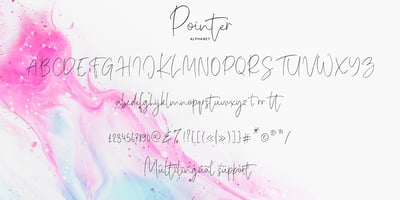 Pointer
ALPHABET
ABCDEFGHIJKLMNOPQRSTUVWXYZ
abcdefghijklmnopqrstuvwxyz t rr tt
1234567890@&%!?{[(«|»)]}#*©®™/
Multilingual support